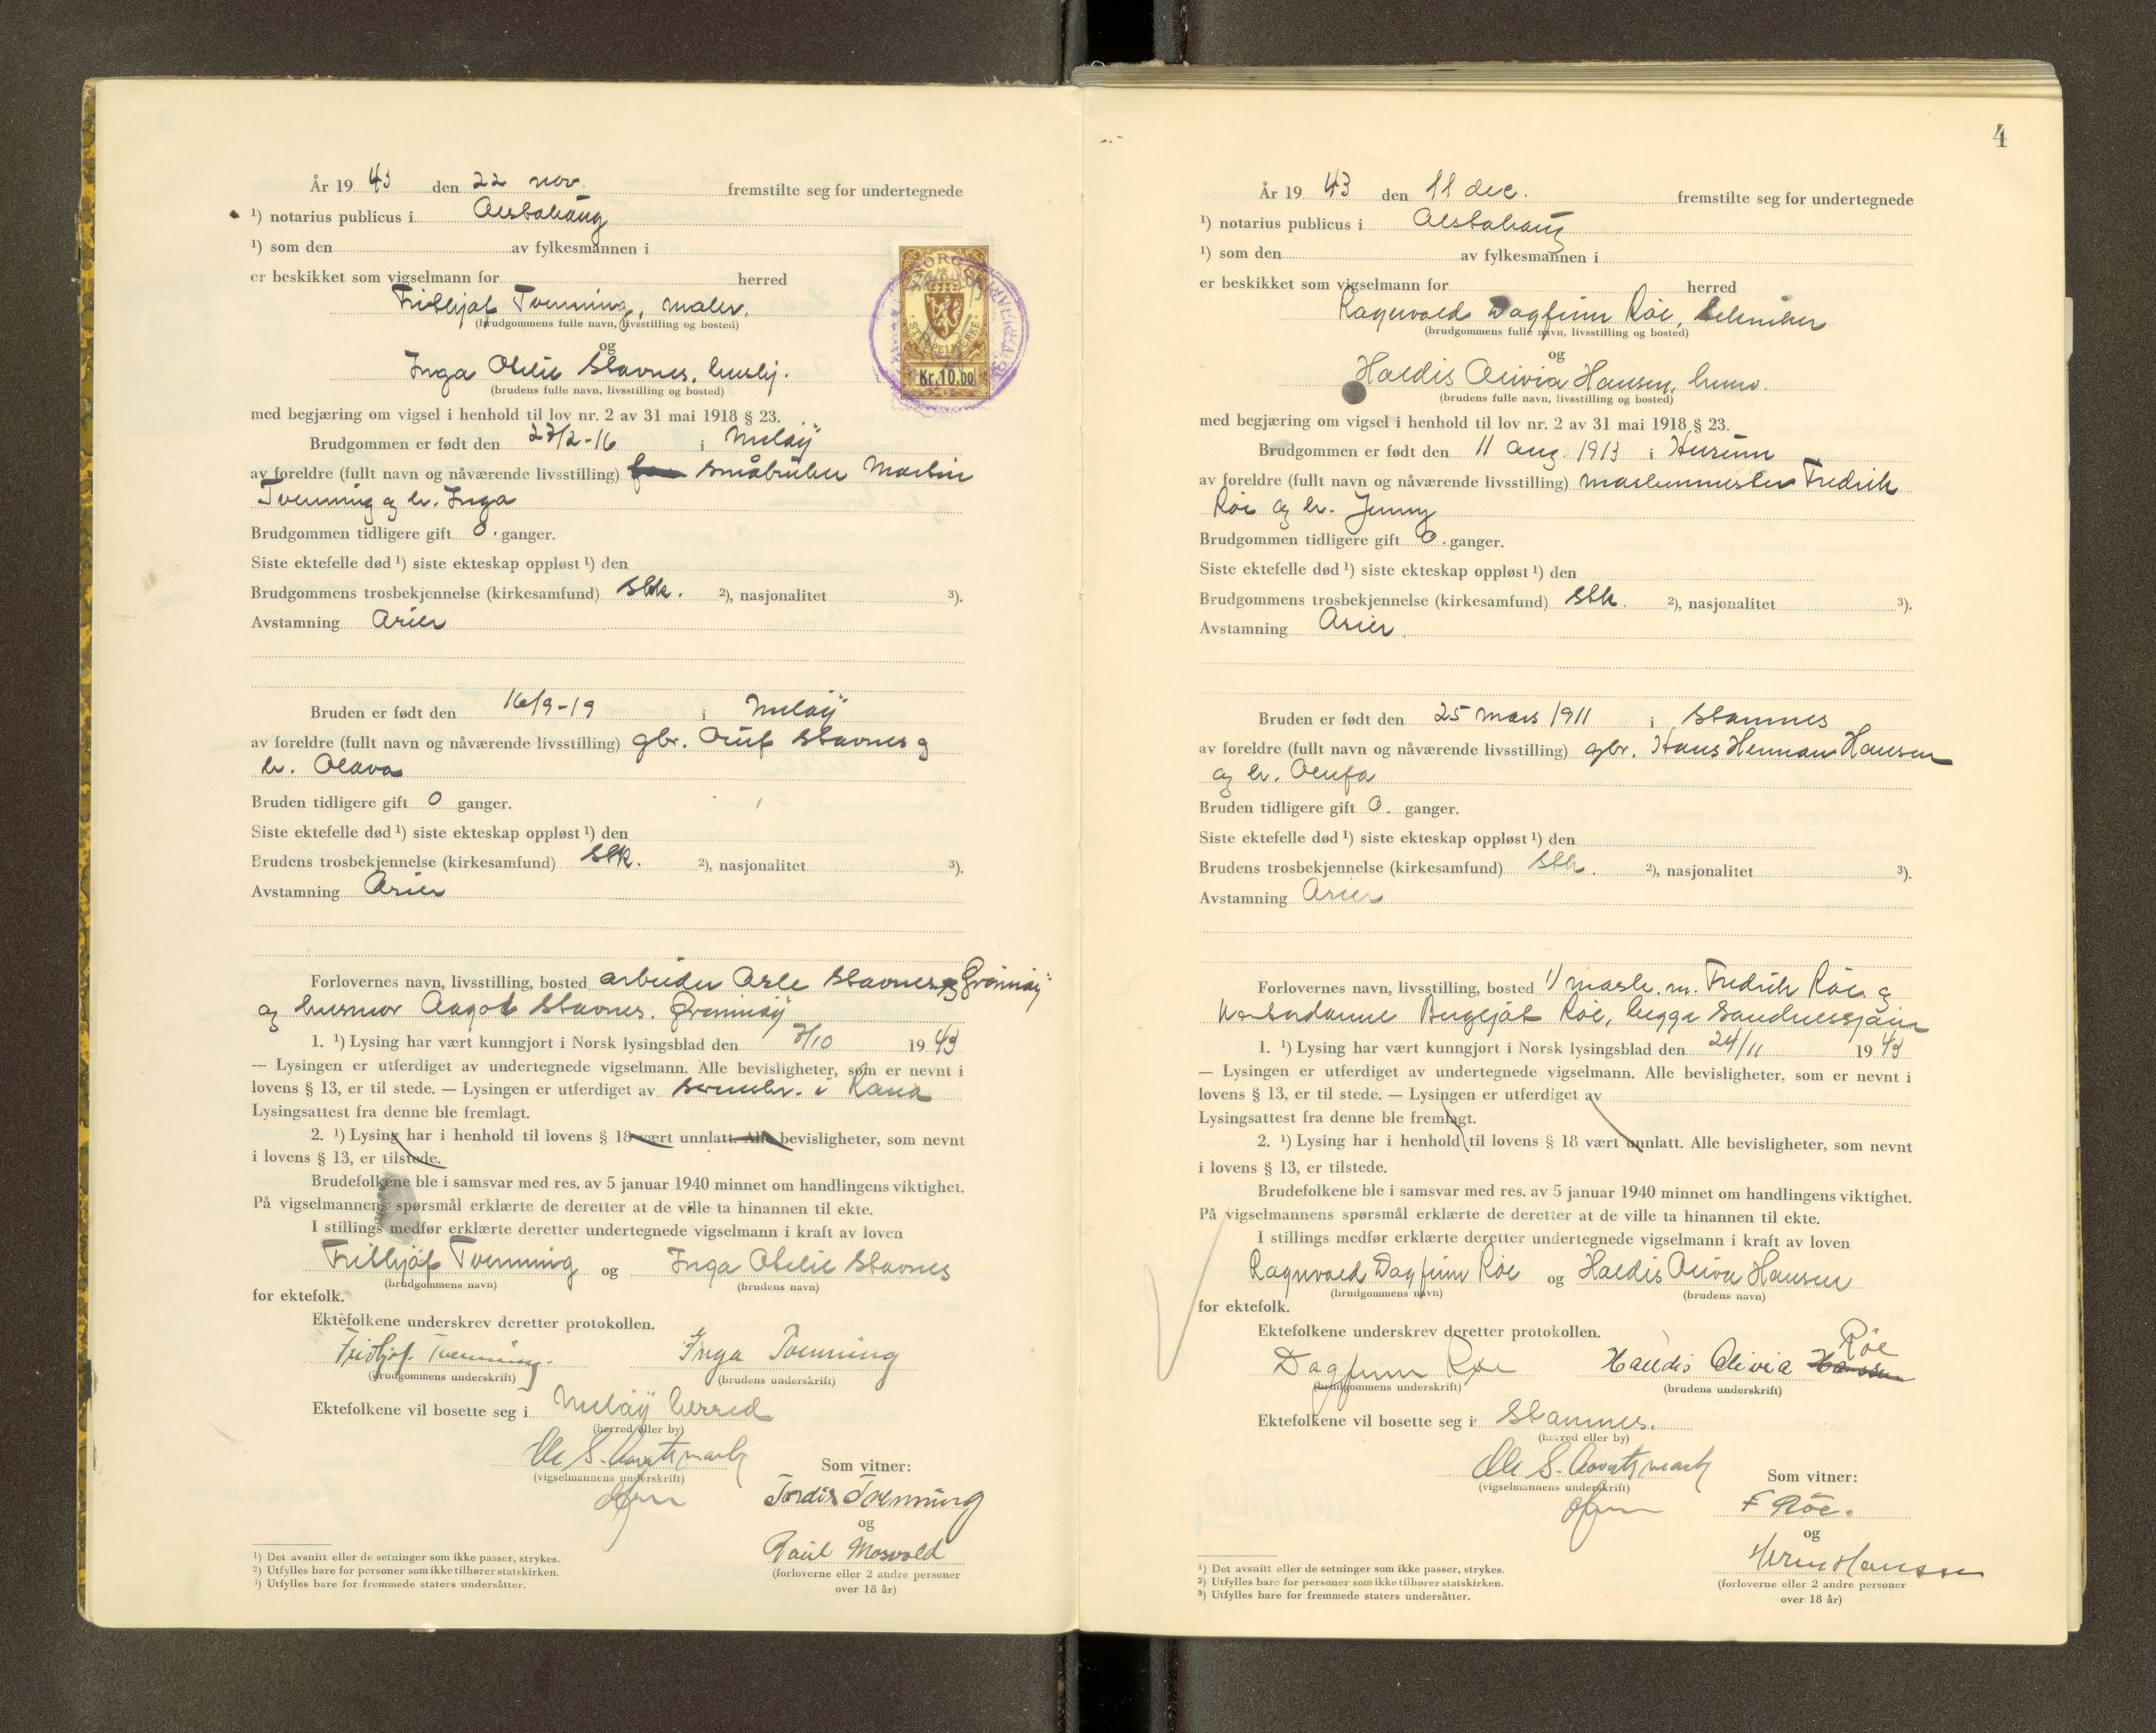 År 19 43 den 22 nov. fremstilte seg for undertegnede
¹) notarius publicus i Alstahaug
¹) som den av fylkesmannen i
er beskikket som vigselmann for herred
Frithjof Tvenning, maler.
(brudgommens fulle navn, livsstilling og bosted)
og
Inga Otelie Stavnes, hushj.
(brudens fulle navn, livsstilling og bosted)
NORGE
STEMPELMERKE
Kr. 10.00
med begjæring om vigsel i henhold til lov nr. 2 av 31 mai 1918 § 23.
Brudgommen er født den 27/2-16 i Meløy
av foreldre (fullt navn og nåværende livsstilling) småbruker Martin
Tvenning og h. Inga
Brudgommen tidligere gift 0. ganger.
Siste ektefelle død ¹) siste ekteskap oppløst ¹) den
Brudgommens trosbekjennelse (kirkesamfund) Stk. ²), nasjonalitet ³).
Avstamning Arier
Bruden er født den 16/9-19 i Meløy
av foreldre (fullt navn og nåværende livsstilling) gbr. Oluf Stavnes og
h. Olava
Bruden tidligere gift 0 ganger.
Siste ektefelle død ¹) siste ekteskap oppløst ¹) den
Brudens trosbekjennelse (kirkesamfund) Stk. ²), nasjonalitet ³).
Avstamning Arier
Forlovernes navn, livsstilling, bosted arbeider Asle Stavnes, Grønnøy
og husmor Aagot Stavnes. Grønnøy
1. ¹) Lysing har vært kunngjort i Norsk lysingsblad den 7/10 19 43
— Lysingen er utferdiget av undertegnede vigselmann. Alle bevisligheter, som er nevnt i
lovens § 13, er til stede. — Lysingen er utferdiget av sorenskr. i Rana
Lysingsattest fra denne ble fremlagt.
2. ¹) Lysing har i henhold til lovens § 18 vært unnlatt. Alle bevisligheter, som nevnt
i lovens § 13, er tilstede.
Brudefolkene ble i samsvar med res. av 5 januar 1940 minnet om handlingens viktighet.
På vigselmannens spørsmål erklærte de deretter at de ville ta hinannen til ekte.
I stillings medfør erklærte deretter undertegnede vigselmann i kraft av loven
Frithjof Tvenning og Inga Otelie Stavnes
(brudgommens navn) (brudens navn)
for ektefolk.
Ektefolkene underskrev deretter protokollen.
Fridtjof Tvenning. Inga Tvenning
(brudgommens underskrift) (brudens underskrift)
Ektefolkene vil bosette seg i Meløy herred
(herred eller by)
Ole S. Aavatsmark
(vigselmannens underskrift)
Som vitner:
Tordis Tvenning
og
Paul Mosvold
(forloverne eller 2 andre personer
over 18 år)
¹) Det avsnitt eller de setninger som ikke passer, strykes.
²) Utfylles bare for personer som ikke tilhører statskirken.
³) Utfylles bare for fremmede staters undersåtter.
4
År 19 43 den 11 dec. fremstilte seg for undertegnede
¹) notarius publicus i Alstahaug
¹) som den av fylkesmannen i
er beskikket som vigselmann for herred
Ragnvald Dagfinn Röe, tekniker
(brudgommens fulle navn, livsstilling og bosted)
og
Haldis Alivia Hansen, husm.
(brudens fulle navn, livsstilling og bosted)
med begjæring om vigsel i henhold til lov nr. 2 av 31 mai 1918 § 23.
Brudgommen er født den 11 aug. 1913 i Hurum
av foreldre (fullt navn og nåværende livsstilling) maskinmester Fredrik
Röe og h. Jenny
Brudgommen tidligere gift 0. ganger.
Siste ektefelle død ¹) siste ekteskap oppløst ¹) den
Brudgommens trosbekjennelse (kirkesamfund) Stk. ²), nasjonalitet ³).
Avstamning Arier.
Bruden er født den 25 mars 1911 i Stamnes
av foreldre (fullt navn og nåværende livsstilling) gbr. Hans Herman Hansen
og h. Olufa
Bruden tidligere gift 0. ganger.
Siste ektefelle død ¹) siste ekteskap oppløst ¹) den
Brudens trosbekjennelse (kirkesamfund) Stk. ²), nasjonalitet ³).
Avstamning Arier
Forlovernes navn, livsstilling, bosted 1/ mask. m. Fredrik Röe og
kontordame Bergljot Röe, begge Sandnessjøen
1. ¹) Lysing har vært kunngjort i Norsk lysingsblad den 24/11 19 43
— Lysingen er utferdiget av undertegnede vigselmann. Alle bevisligheter, som er nevnt i
lovens § 13, er til stede. — Lysingen er utferdiget av
Lysingsattest fra denne ble fremlagt.
2. ¹) Lysing har i henhold til lovens § 18 vært unnlatt. Alle bevisligheter, som nevnt
i lovens § 13, er tilstede.
Brudefolkene ble i samsvar med res. av 5 januar 1940 minnet om handlingens viktighet.
På vigselmannens spørsmål erklærte de deretter at de ville ta hinannen til ekte.
I stillings medfør erklærte deretter undertegnede vigselmann i kraft av loven
Ragnvald Dagfinn Röe og Haldis Alivia Hansen
(brudgommens navn) (brudens navn)
for ektefolk.
Ektefolkene underskrev deretter protokollen.
Dagfinn Røe Haldis Olivia Hansen Röe
(brudgommens underskrift) (brudens underskrift)
Ektefolkene vil bosette seg i Stamnes.
(herred eller by)
Ole S. Aavatsmark
(vigselmannens underskrift)
Som vitner:
F Röe.
og
Herm Hanssen
(forloverne eller 2 andre personer
over 18 år)
¹) Det avsnitt eller de setninger som ikke passer, strykes.
²) Utfylles bare for personer som ikke tilhører statskirken.
³) Utfylles bare for fremmede staters undersåtter.